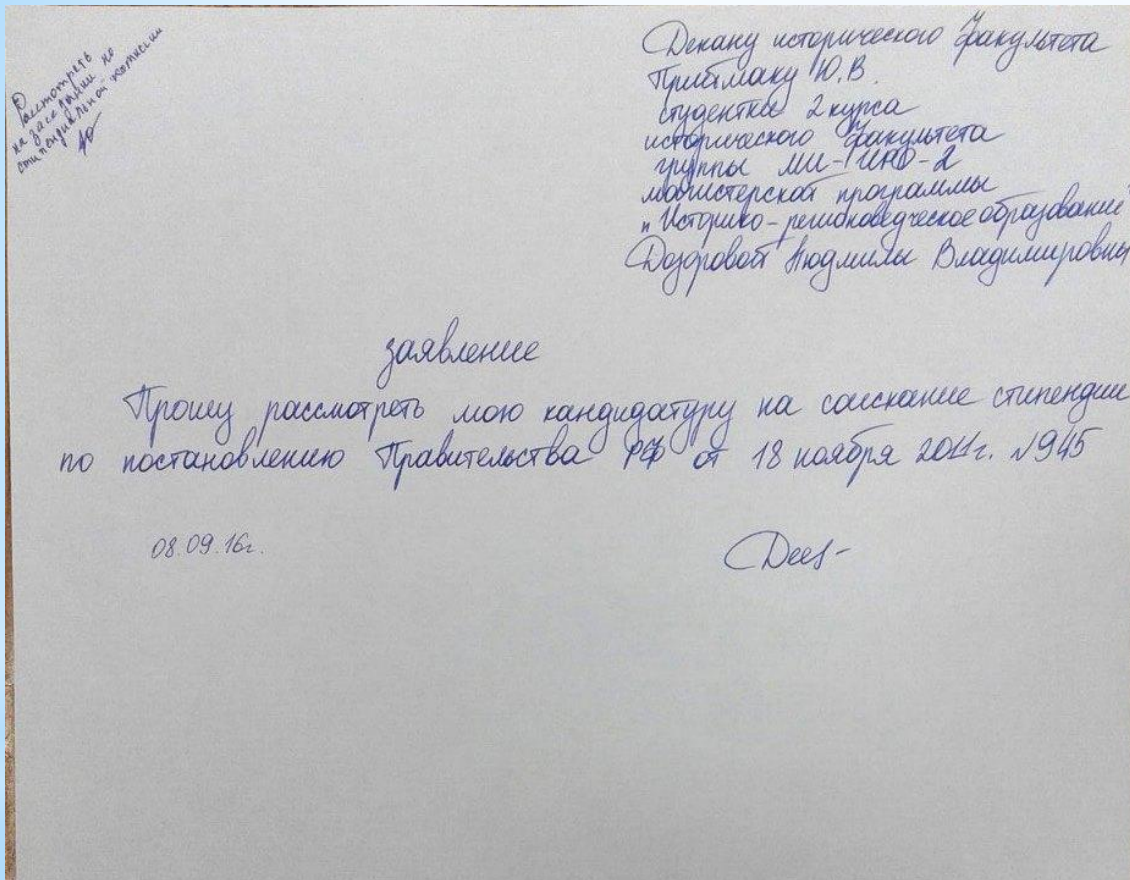 Рассмотреть
на заседании
стипендиальной комиссии
Декану исторического факультета
Приймаку Ю.В.
студентки 2 курса
исторического факультета
группы
магистерской программы
"Историко-регионоведческое образование"
Людмилы Владимировны
заявление
Прошу рассмотреть мою кандидатуру на соискание стипендии
по постановлению Правительства РФ от 18 ноября 2011г. №945
08.09.16г.